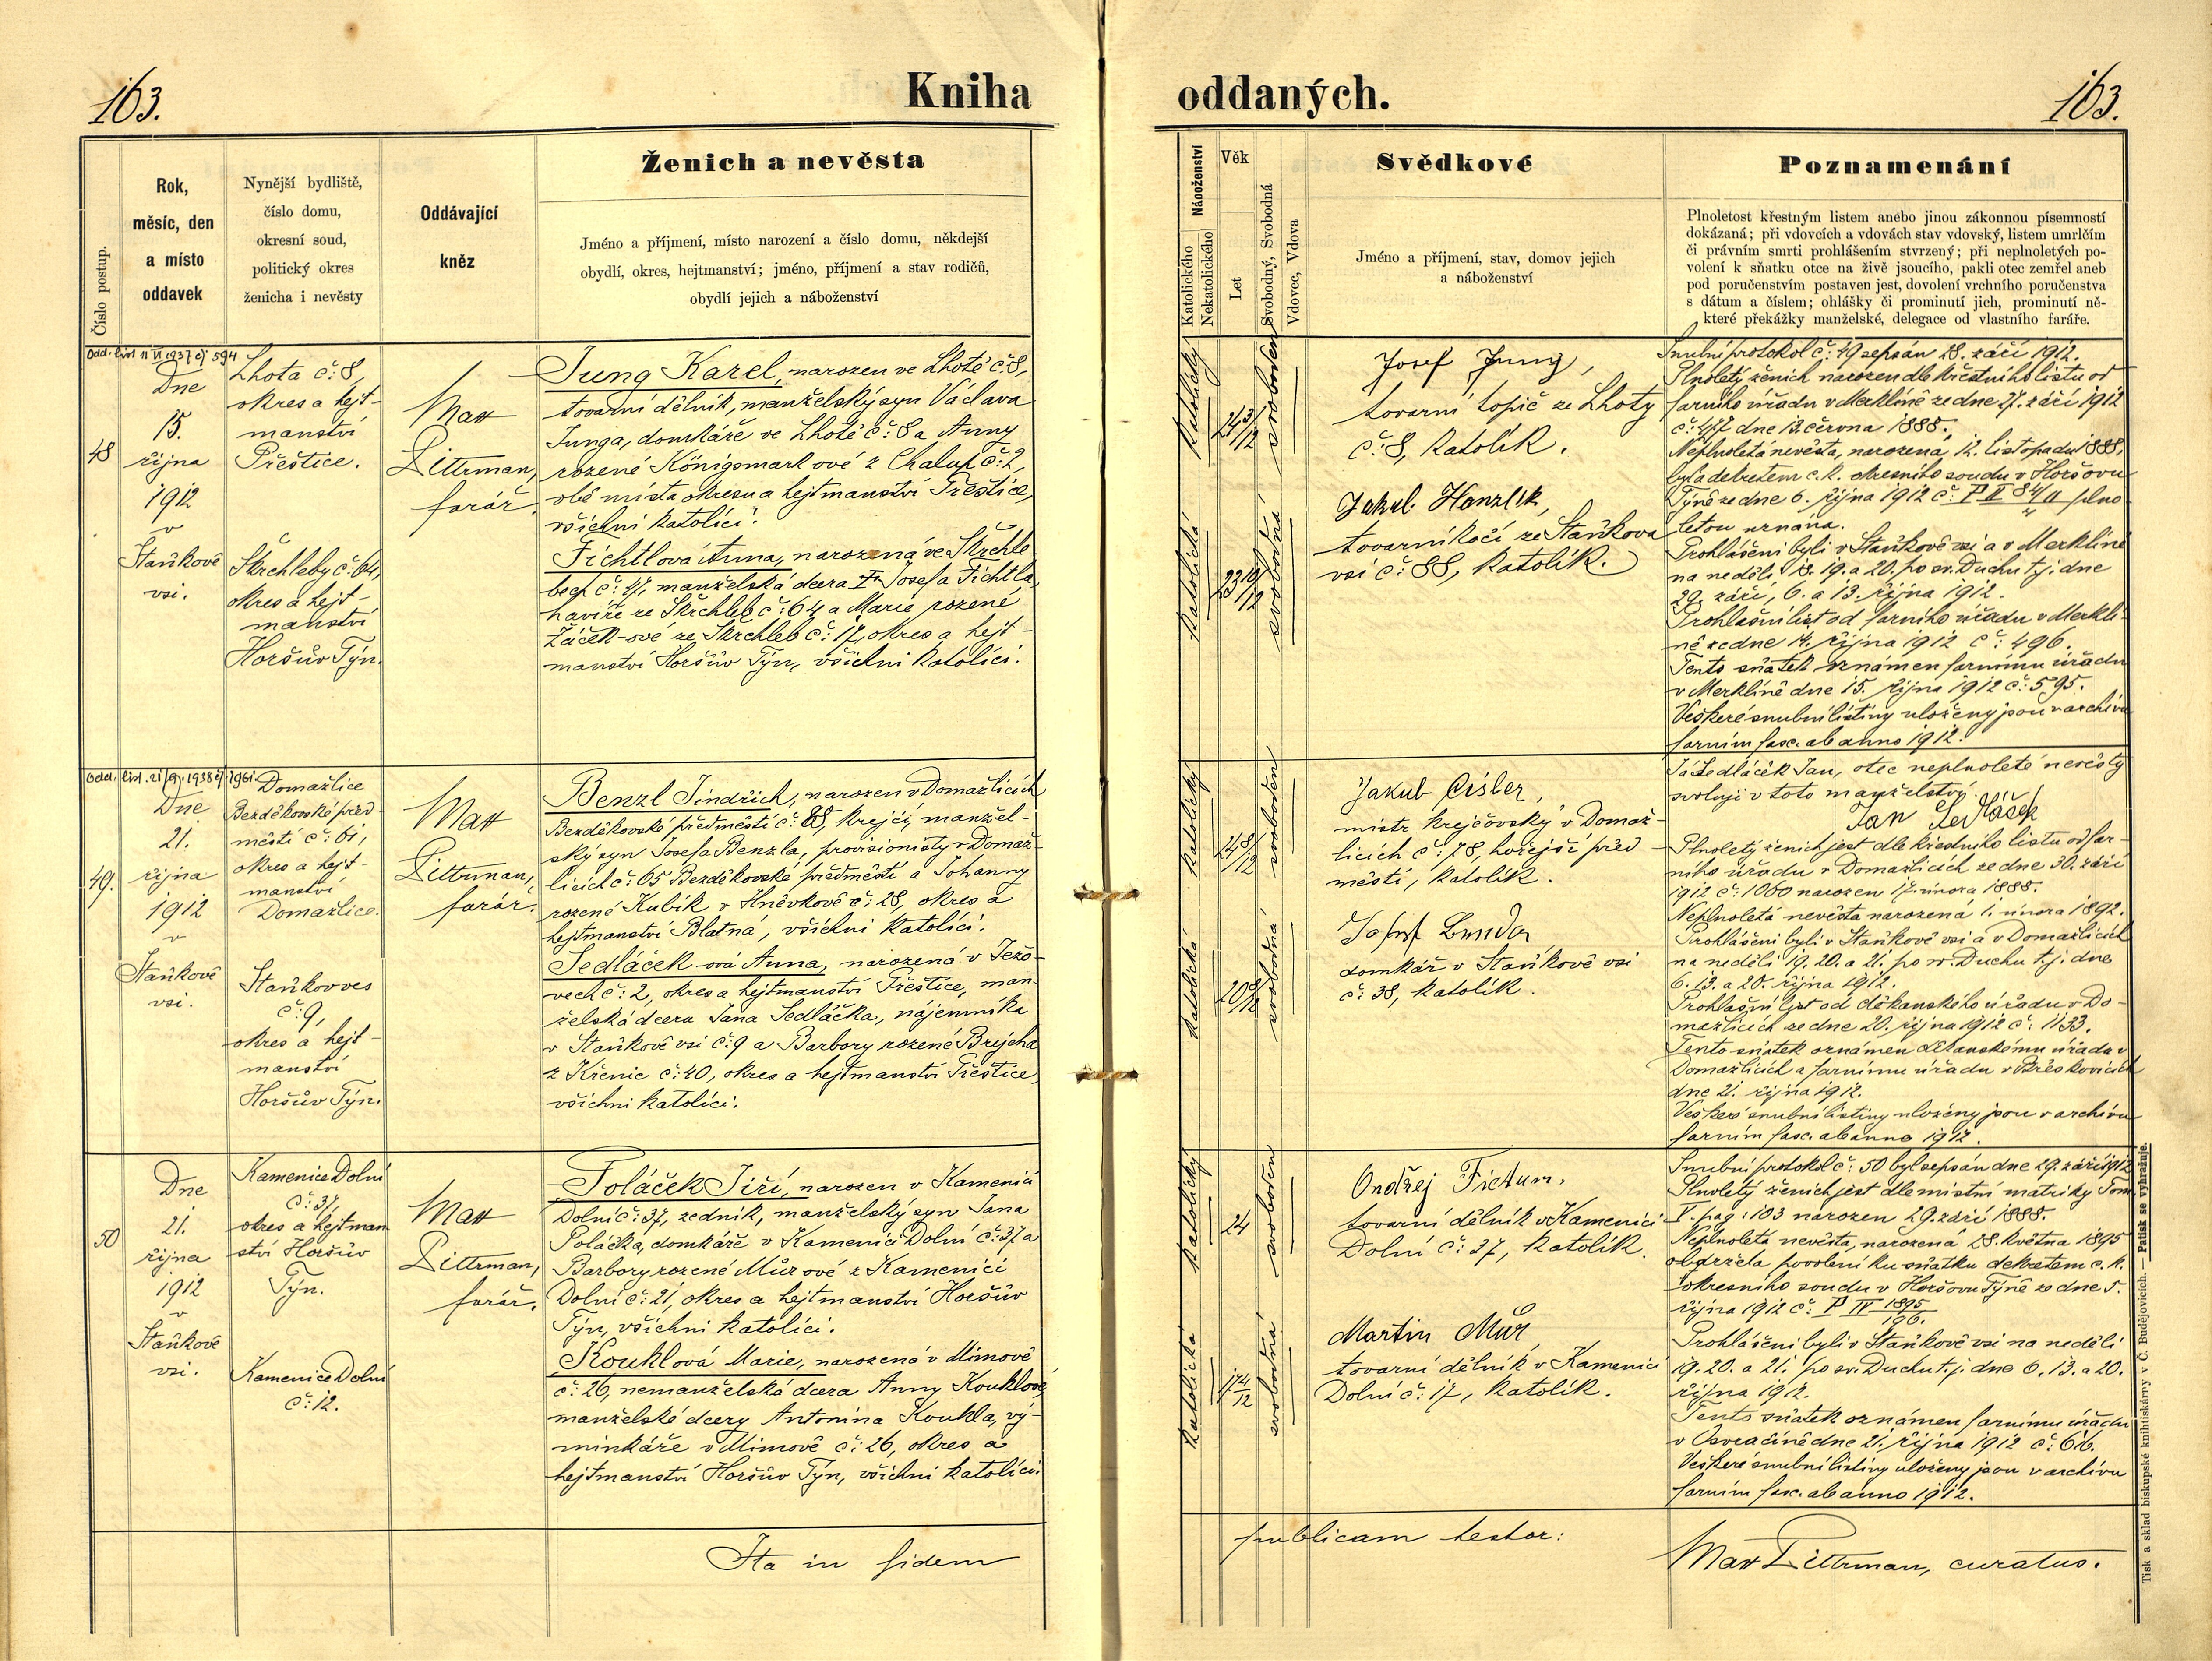 163.
Kniha
oddaných.
163.
Číslo postup.
Rok,
měsíc, den
a místo
oddavek
Nynější bydliště,
číslo domu,
okresní soud,
politický okres
ženicha i nevěsty
Oddávající
kněz
Ženich a nevěsta
Jméno a příjmení, místo narození a číslo domu, někdejší
obydlí, okres, hejtmanství; jméno, příjmení a stav rodičů,
obydlí jejich a náboženství
Náboženství
Katolického
Nekatolického
Věk
Let
Svobodný, Svobodná
Vdovec, Vdova
Svědkové
Jméno a příjmení, stav, domov jejich
a náboženství
Poznamenání
Plnoletost křestným listem anebo jinou zákonnou písemností
dokázaná; při vdovcích a vdovách stav vdovský, listem umrlčím
či právním smrti prohlášením stvrzený; při neplnoletých po-
volení k sňatku otce na živě jsoucího, pakli otec zemřel aneb
pod poručenstvím postaven jest, dovolení vrchního poručenstva
s dátum a číslem; ohlášky či prominutí jich, prominutí ně-
které překážky manželské, delegace od vlastního faráře.
Odd. list 11 VI 1937 čj 594
48
Dne
15.
října
1912
v
Staňkově
vsi.
Lhota č: 8,
okres a hejt-
manství
Přeštice.
Skrchleby č: 64,
okres a hejt-
manství
Horšův Týn.
Max
Pittrman,
farář.
Jung Karel, narozen ve Lhotě č: 8,
tovarní dělník, manželský syn Václava
Junga, domkáře ve Lhotě č: 8 a Anny
rozené Königsmarkové z Chalup č: 2,
obě místa okresu a hejtmanství Přeštice,
všichni katolíci.
Fichtlová Anna, narozená ve Skrchle
bech č: 47, manželská dcera † Josefa Fichtla,
havíře ze Skrchleb č: 64 a Marie rozené
Žáček-ové ze Skrchleb č: 17, okres a hejt-
manství Horšův Týn, všichni katolíci.
katolický
24 3/12
svoboden
katolická
23 10/12
svobodná
Josef Jung,
tovarní topič ze Lhoty
č: 8, katolík.
Jakub Hanzlík,
tovarní kočí ze Staňkova
vsi č: 88, katolík.
Snubní protokol č: 49 sepsán 28. září 1912.
Plnoletý ženich narozen dle křestního listu od
farního úřadu v Merklíně ze dne 27. září 1912
č: 477 dne 13. června 1888.
Neplnoletá nevěsta, narozená 12. listopadu 1888,
byla dekretem c. k. okresního soudu v Horšovu
Týně ze dne 6. října 1912 č: P II 84/11 plno
letou uznána.
Prohlášeni byli v Staňkově vsi a v Merklíně
na neděli, 18. 19. a 20. po sv. Duchu t. j. dne
29. září, 6. a 13. října 1912.
Prohlašní list od farního úřadu v Merklí-
ně ze dne 14. října 1912 č: 496.
Tento sňatek oznámen farnímu úřadu
v Merklíně dne 15. října 1912 č: 595.
Veškeré snubní listiny uloženy jsou v archivu
farním fasc. ab anno 1912.
Odd. list. 21/9. 1938 čj 1961.
49.
Dne
21.
října
1912
v
Staňkově
vsi.
Domažlice
Bezděkovské před
městí č: 61,
okres a hejt-
manství
Domažlice.
Staňkov ves
č: 9,
okres a hejt-
manství
Horšův Týn.
Max
Pittrman,
farář.
Benzl Jindřich, narozen v Domažlicích
Bezděkovské předměstí č: 88, krejčí, manžel-
ský syn Josefa Benzla, provisionisty v Domaž-
licích č: 65 Bezděkovské předměstí a Johanny
rozené Kubík v Hněvkově č: 28, okres a
hejtmanství Blatná, všichni katolíci.
Sedláček-ová Anna, narozená v Ježo-
vech č: 2, okres a hejtmanství Přeštice, man
želská dcera Jana Sedláčka, nájemníka
v Staňkově vsi č: 9 a Barbory rozené Brejcha
z Křenic č: 40, okres a hejtmanství Přeštice,
všichni katolíci.
katolický
24 8/12
svoboden
katolická
20 8/12
svobodná
Jakub Cisler,
mistr krejčovský v Domaž-
licích č: 78, hořejší před-
městí, katolík.
Josef Bunda
domkář v Staňkově vsi
č: 38, katolík.
Já Sedláček Jan, otec neplnoleté nevěsty
svoluji v toto manželství.
Jan Sedláček
Plnoletý ženich jest dle křestního listu od far-
ního úřadu v Domažlicích ze dne 30. září
1912 č: 1060 narozen 17. února 1888.
Neplnoletá nevěsta narozená 1. února 1892.
Prohlášeni byli v Staňkově vsi a v Domažlicích
na neděli 19. 20. a 21. po sv. Duchu t. j. dne
6. 13. a 20. října 1912.
Prohlašní list od děkanského úřadu v Do-
mažlicích ze dne 20. října 1912 č: 1133.
Tento sňatek oznámen děkanskému úřadu v
Domažlicích a farnímu úřadu v
dne 21. října 1912.
Veškeré snubní listiny uloženy jsou v archivu
farním fasc. ab anno 1912.
50
Dne
21.
října
1912
v
Staňkově
vsi.
Kamenice Dolní
č: 37,
okres a hejtman
ství Horšův
Týn.
Kamenice Dolní
č: 12.
Max
Pittrman,
farář.
Poláček Jiří, narozen v Kamenici
Dolní č: 37, zedník, manželský syn Jana
Poláčka, domkáře v Kamenici Dolní č: 37 a
Barbory rozené Můrové z Kamenici
Dolní č: 21, okres a hejtmanství Horšův
Týn, všichni katolíci.
Kouklová Marie, narozená v Mimově
č: 26, nemanželská dcera Anny Kouklové,
manželské dcery Antonína Koukla, vý-
minkáře v Mimově č: 26, okres a
hejtmanství Horšův Týn, všichni katolíci.
katolický
24
svoboden
katolická
17 4/12
svobodná
Ondřej Fictum,
tovarní dělník v Kamenici
Dolní č: 37, katolík.
Martin Můř
tovarní dělník v Kamenici
Dolní č: 17, katolík.
Snubní protokol č: 50 byl sepsán dne 29. září 1912
Plnoletý ženich jest dle místní matriky Tom
V. pag: 103 narozen 29. září 1888.
Neplnoletá nevěsta, narozená 28. května 1895
obdržela povolení ku sňatku dekretem c. k.
okresního soudu v Horšovu Týně ze dne 5.
října 1912 č: P IV 1895/196.
Prohlášeni byli v Staňkově vsi na neděli
19. 20. a 21. po sv. Duchu t. j. dne 6. 13. a 20.
října 1912.
Tento sňatek oznámen farnímu úřadu
v Osvračíně dne 21. října 1912 č: 616.
Veškeré snubní listiny uloženy jsou v archivu
farním fasc. ab anno 1912.
Ita in fidem
publicam testor:
Max Pittrman, curatus.
Tisk a sklad biskupské knihtiskárny v Č. Budějovicích. — Patisk se vyhražuje.